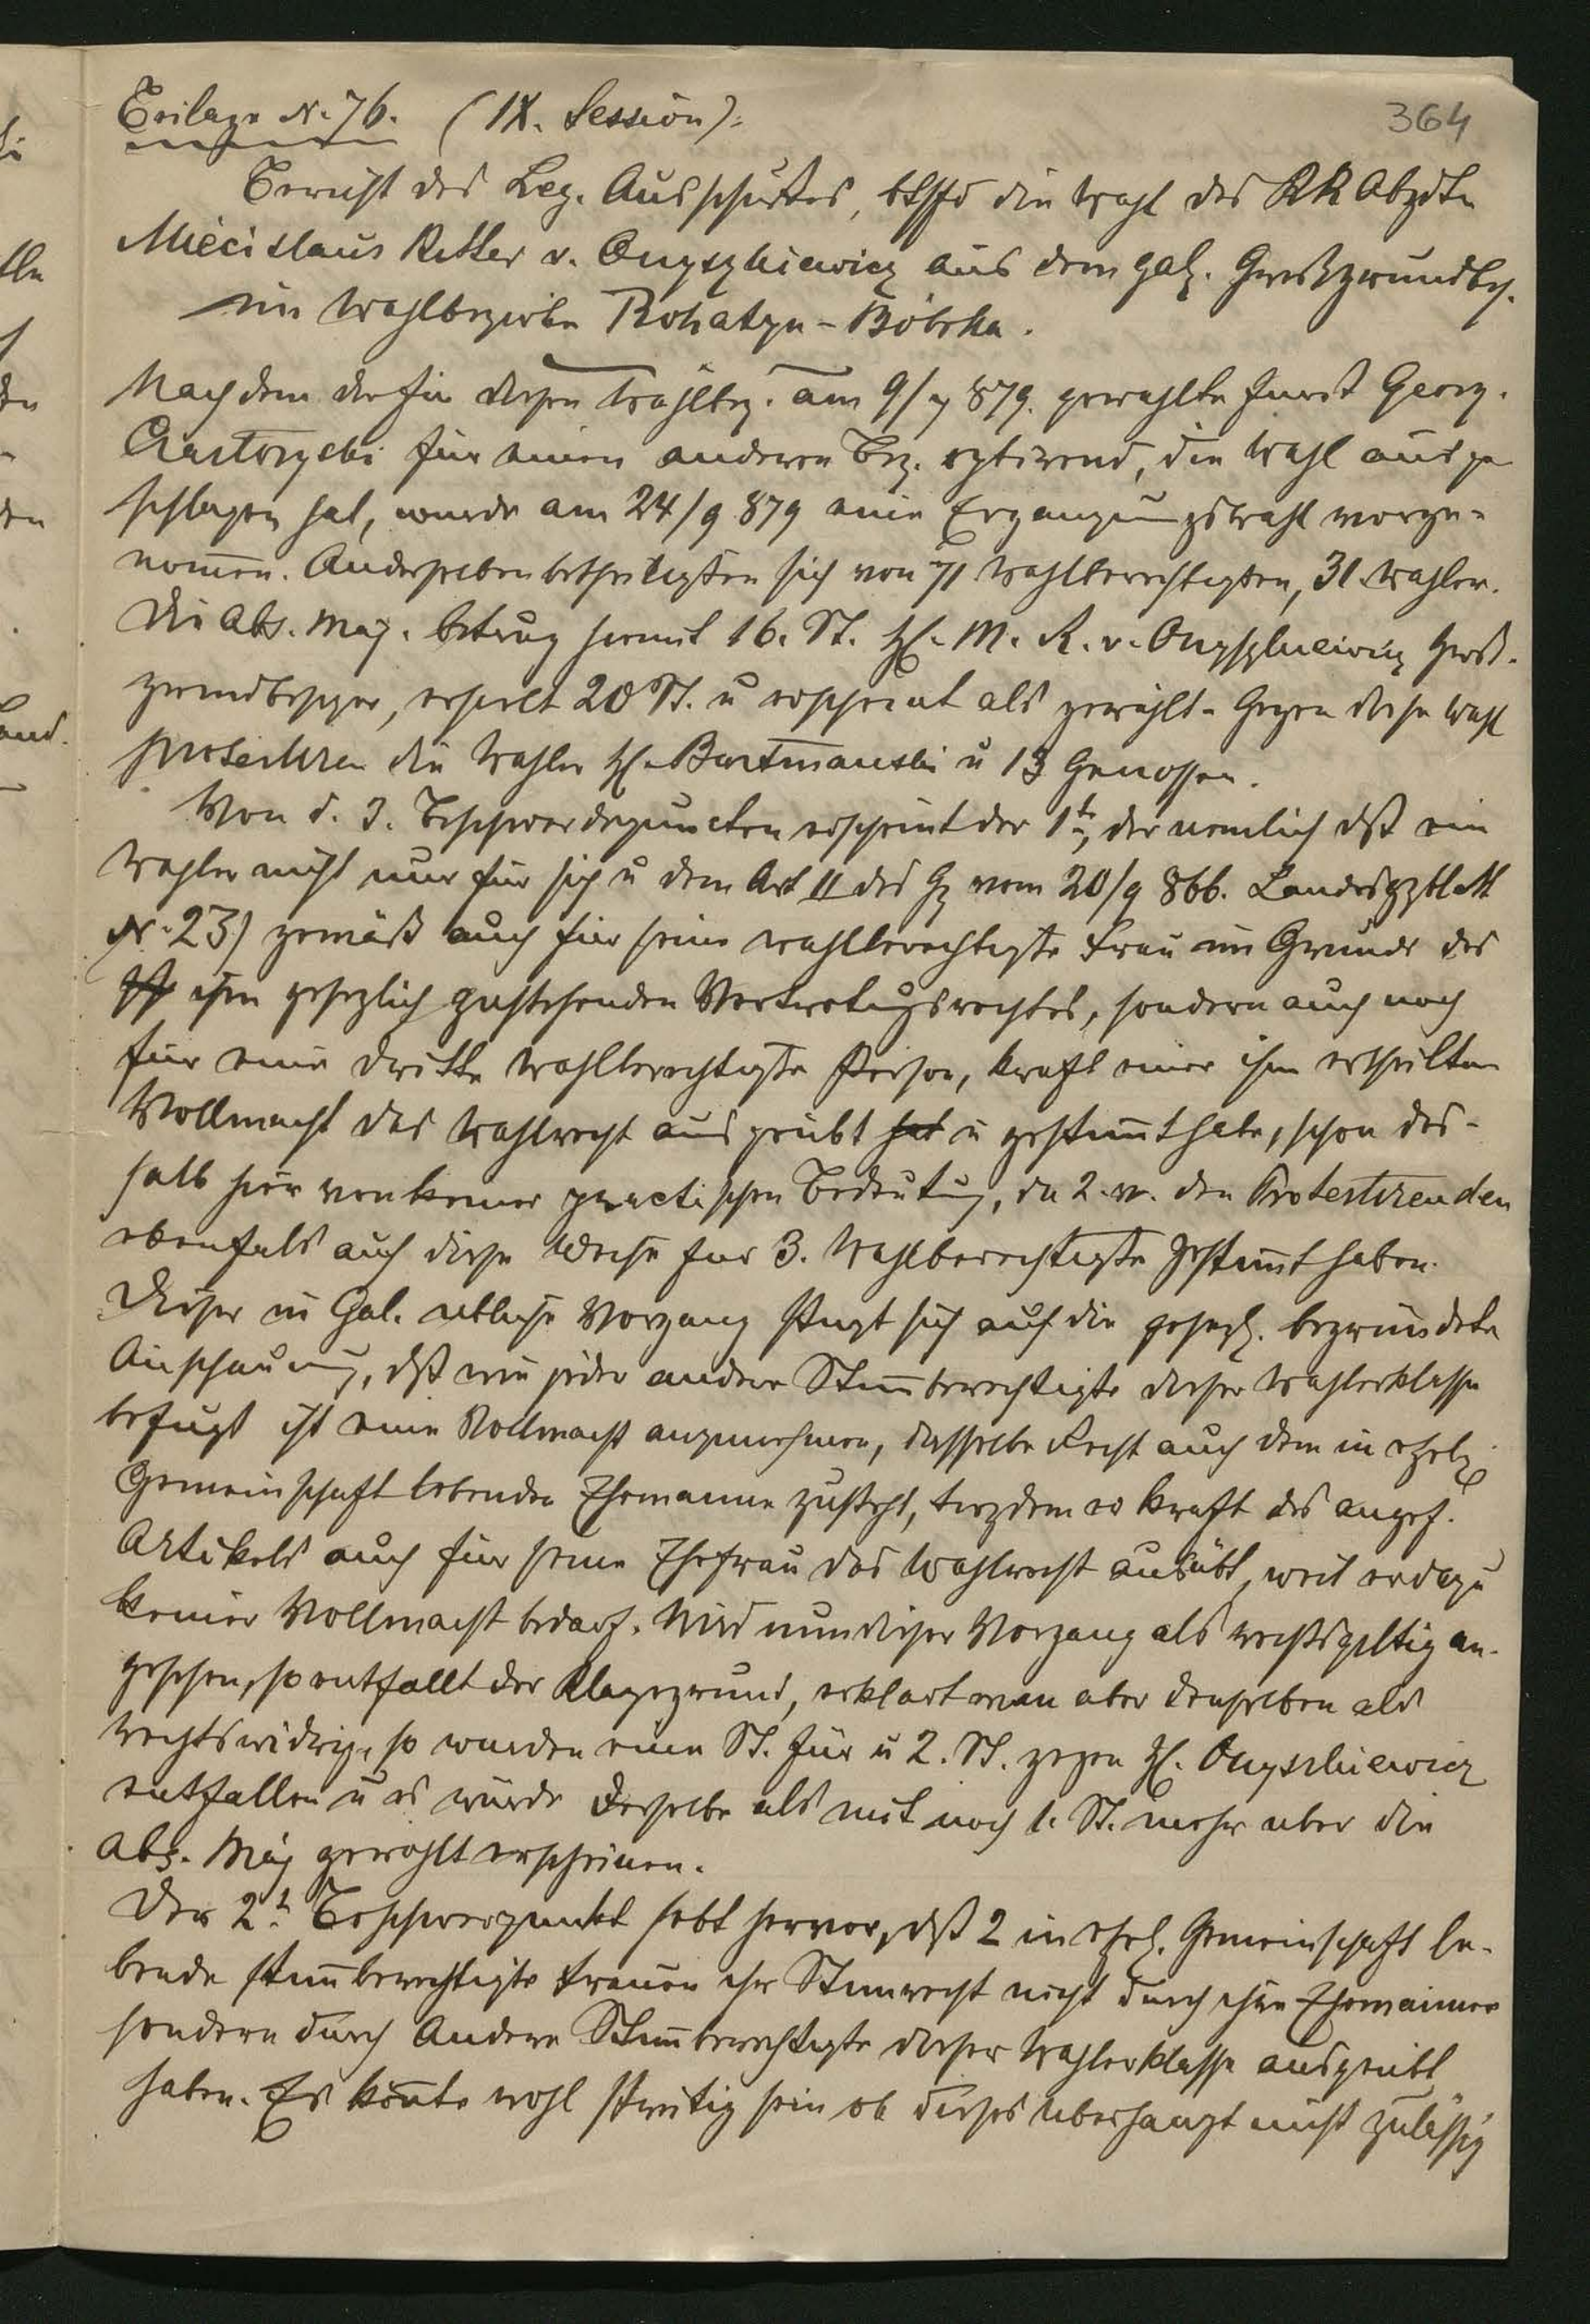 364
Beilage N. 76. (IX. Session).
Bericht des Leg. Ausschußes, btffd die Wahl des RR Abgdtn
Miecislaus Ritter v. Onyszkiewicz aus dem galz. Großgrundbs.
im Wahlbezirke Rohatyn-Bóbrka.
Nachdem der für diesen Wahlbez. am 9/7 879. gewählte Fürst Georg.
Czartoryski für einen anderen Bez. optirend, die Wahl ausge
schlagen hat, wurde am 24/9 879 eine Ergänzungswahl vorge-
nom̄en. An derselben betheiligten sich von 71 Wahlberechtigten, 31 Wähler.
Die Abs. Maj. betrug somit 16. St. H. M. R. v. Onyszkiewicz Groß-
grundbesitzer, erhielt 20 St. u erscheint als gewählt. Gegen diese Wahl
protestiren die Wähler H. Bartmanski u 13 Genossen.
Von d. 3. Beschwerdepuncten erscheint der 1te, der nemlich dß ein
Wähler nicht nur für sich u dem Art II des Gz vom 20/9 866. Landesgzblatt
N. 23) gemäß auch für seine wahlberechtigte Frau im Grunde des
ihm gesezlich zustehenden Vertretungsrechtes, sondern auch noch
für eine dritte wahlberechtigte Person, kraft einer ihm ertheilten
Vollmacht das Wahlrecht ausgeübt hat u gestim̄t habe, schon des-
halb hier von keiner practischen Bedeutung, da 2. v. den Protestirenden
ebenfals auf diese Weise für 3. Wahlberechtigte gestim̄t haben.
Dieser in Gal. übliche Vorgang stüzt sich auf die gesezl. begründete
Anschauung, dß wie jeder andere Stim̄berechtigte dieser Wählerklasse
befugt ist eine Vollmacht anzunehmen, dasselbe Recht auch dem in ehel.
Gemeinschaft lebenden Ehemanne zusteht, trozdem er kraft des angef.
Artikels auch für seine Ehefrau das Wahlrecht ausübt, weil er dazu
keiner Vollmacht bedarf. Wird nun dieser Vorgang als rechtsgiltig an-
gesehen, so entfällt der Klagegrund, erklärt man aber denselben als
rechtswidrig, so würden eine St. für u 2. St. gegen H. Onyszkiewicz
entfallen u es würde derselbe als mit noch 1. St. mehr über die
Abs. Maj gewählt erscheinen.
Der 2te Beschwerpunkt hebt hervor, dß 2 in ehel. Gemeinschaft le-
bende stim̄berechtigte Frauen ihr Stim̄recht nicht durch ihre Ehemänner
sondern durch Andere Stim̄berechtigte dieser Wählerklasse ausgeübt
haben. Es kön̄te wohl streitig sein ob dieses überhaupt nicht zuläßig